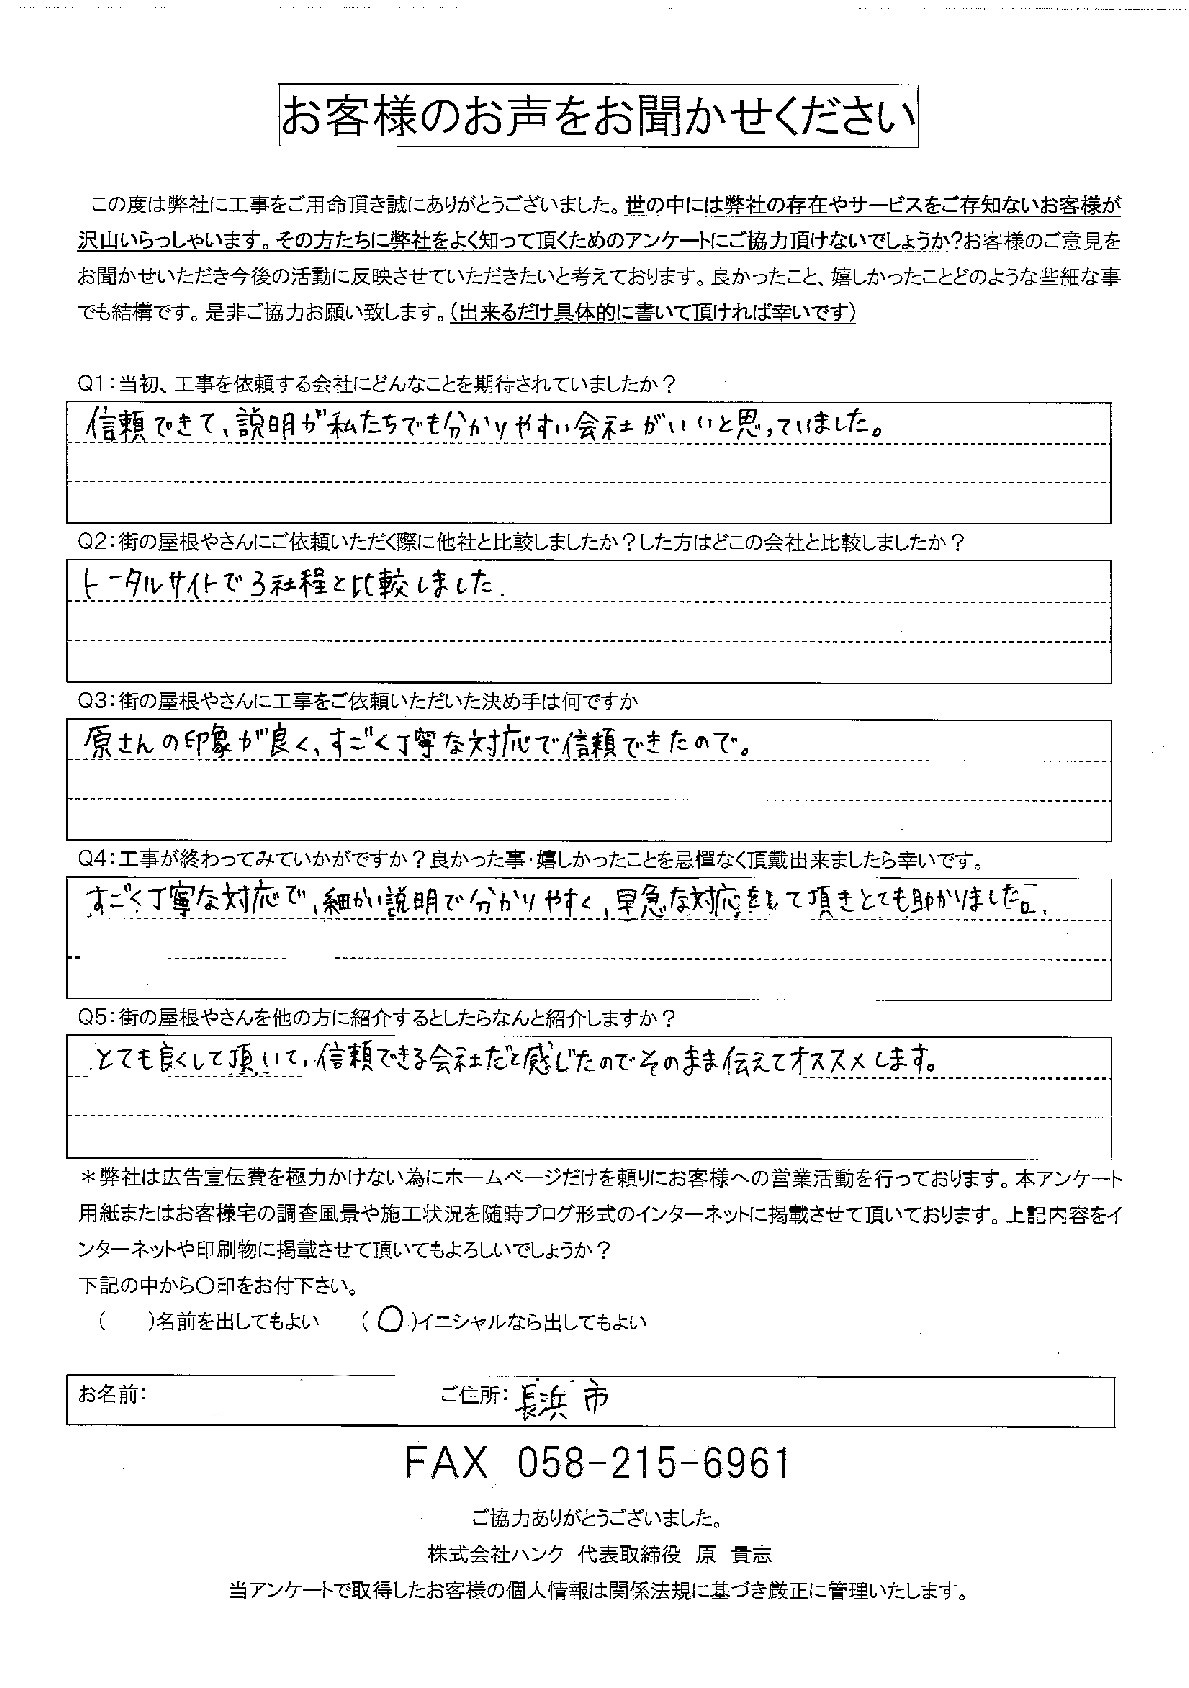 お客様のお声をお聞かせください
この度は弊社に工事をご用命頂き誠にありがとうございました。世の中には弊社の存在やサービスをご存知ないお客様が
沢山いらっしゃいます。その方たちに弊社をよく知って頂くためのアンケートにご協力頂けないでしょうか?お客様のご意見を
お聞かせいただき今後の活動に反映させていただきたいと考えております。良かったこと、嬉しかったことどのような些細な事
でも結構です。是非ご協力お願い致します。(出来るだけ具体的に書いて頂ければ幸いです)
Q1:当初、工事を依頼する会社にどんなことを期待されていましたか?
信頼できて、説明が私たちでも分かりやすい会社がいいと思っていました。
Q2:街の屋根やさんにご依頼いただく際に他社と比較しましたか?した方はどこの会社と比較しましたか?
トータルサイトで3社程と比較しました.
Q3:街の屋根やさんに工事をご依頼いただいた決め手は何ですか
原さんの印象が良く、すごく丁寧な対応で信頼できたので。
Q4:工事が終わってみていかがですか?良かった事・嬉しかったことを忌憚なく頂戴出来ましたら幸いです。
すごく丁寧な対応で、細かい説明で分かりやすく、早急な対応をして頂きとても助かりました。
Q5:街の屋根やさんを他の方に紹介するとしたらなんと紹介しますか?
とても良くして頂いて、信頼できる会社だと感じたのでそのまま伝えてオススメします。
*弊社は広告宣伝費を極力かけない為にホームページだけを頼りにお客様への営業活動を行っております。本アンケート
用紙またはお客様宅の調査風景や施工状況を随時ブログ形式のインターネットに掲載させて頂いております。上記内容をイ
ンターネットや印刷物に掲載させて頂いてもよろしいでしょうか?
下記の中から〇印をお付下さい。
(　)名前を出してもよい　(〇)イニシャルなら出してもよい
お名前:　ご住所:長浜市
FAX 058-215-6961
ご協力ありがとうございました。
株式会社ハンク 代表取締役 原 貴志
当アンケートで取得したお客様の個人情報は関係法規に基づき厳正に管理いたします。